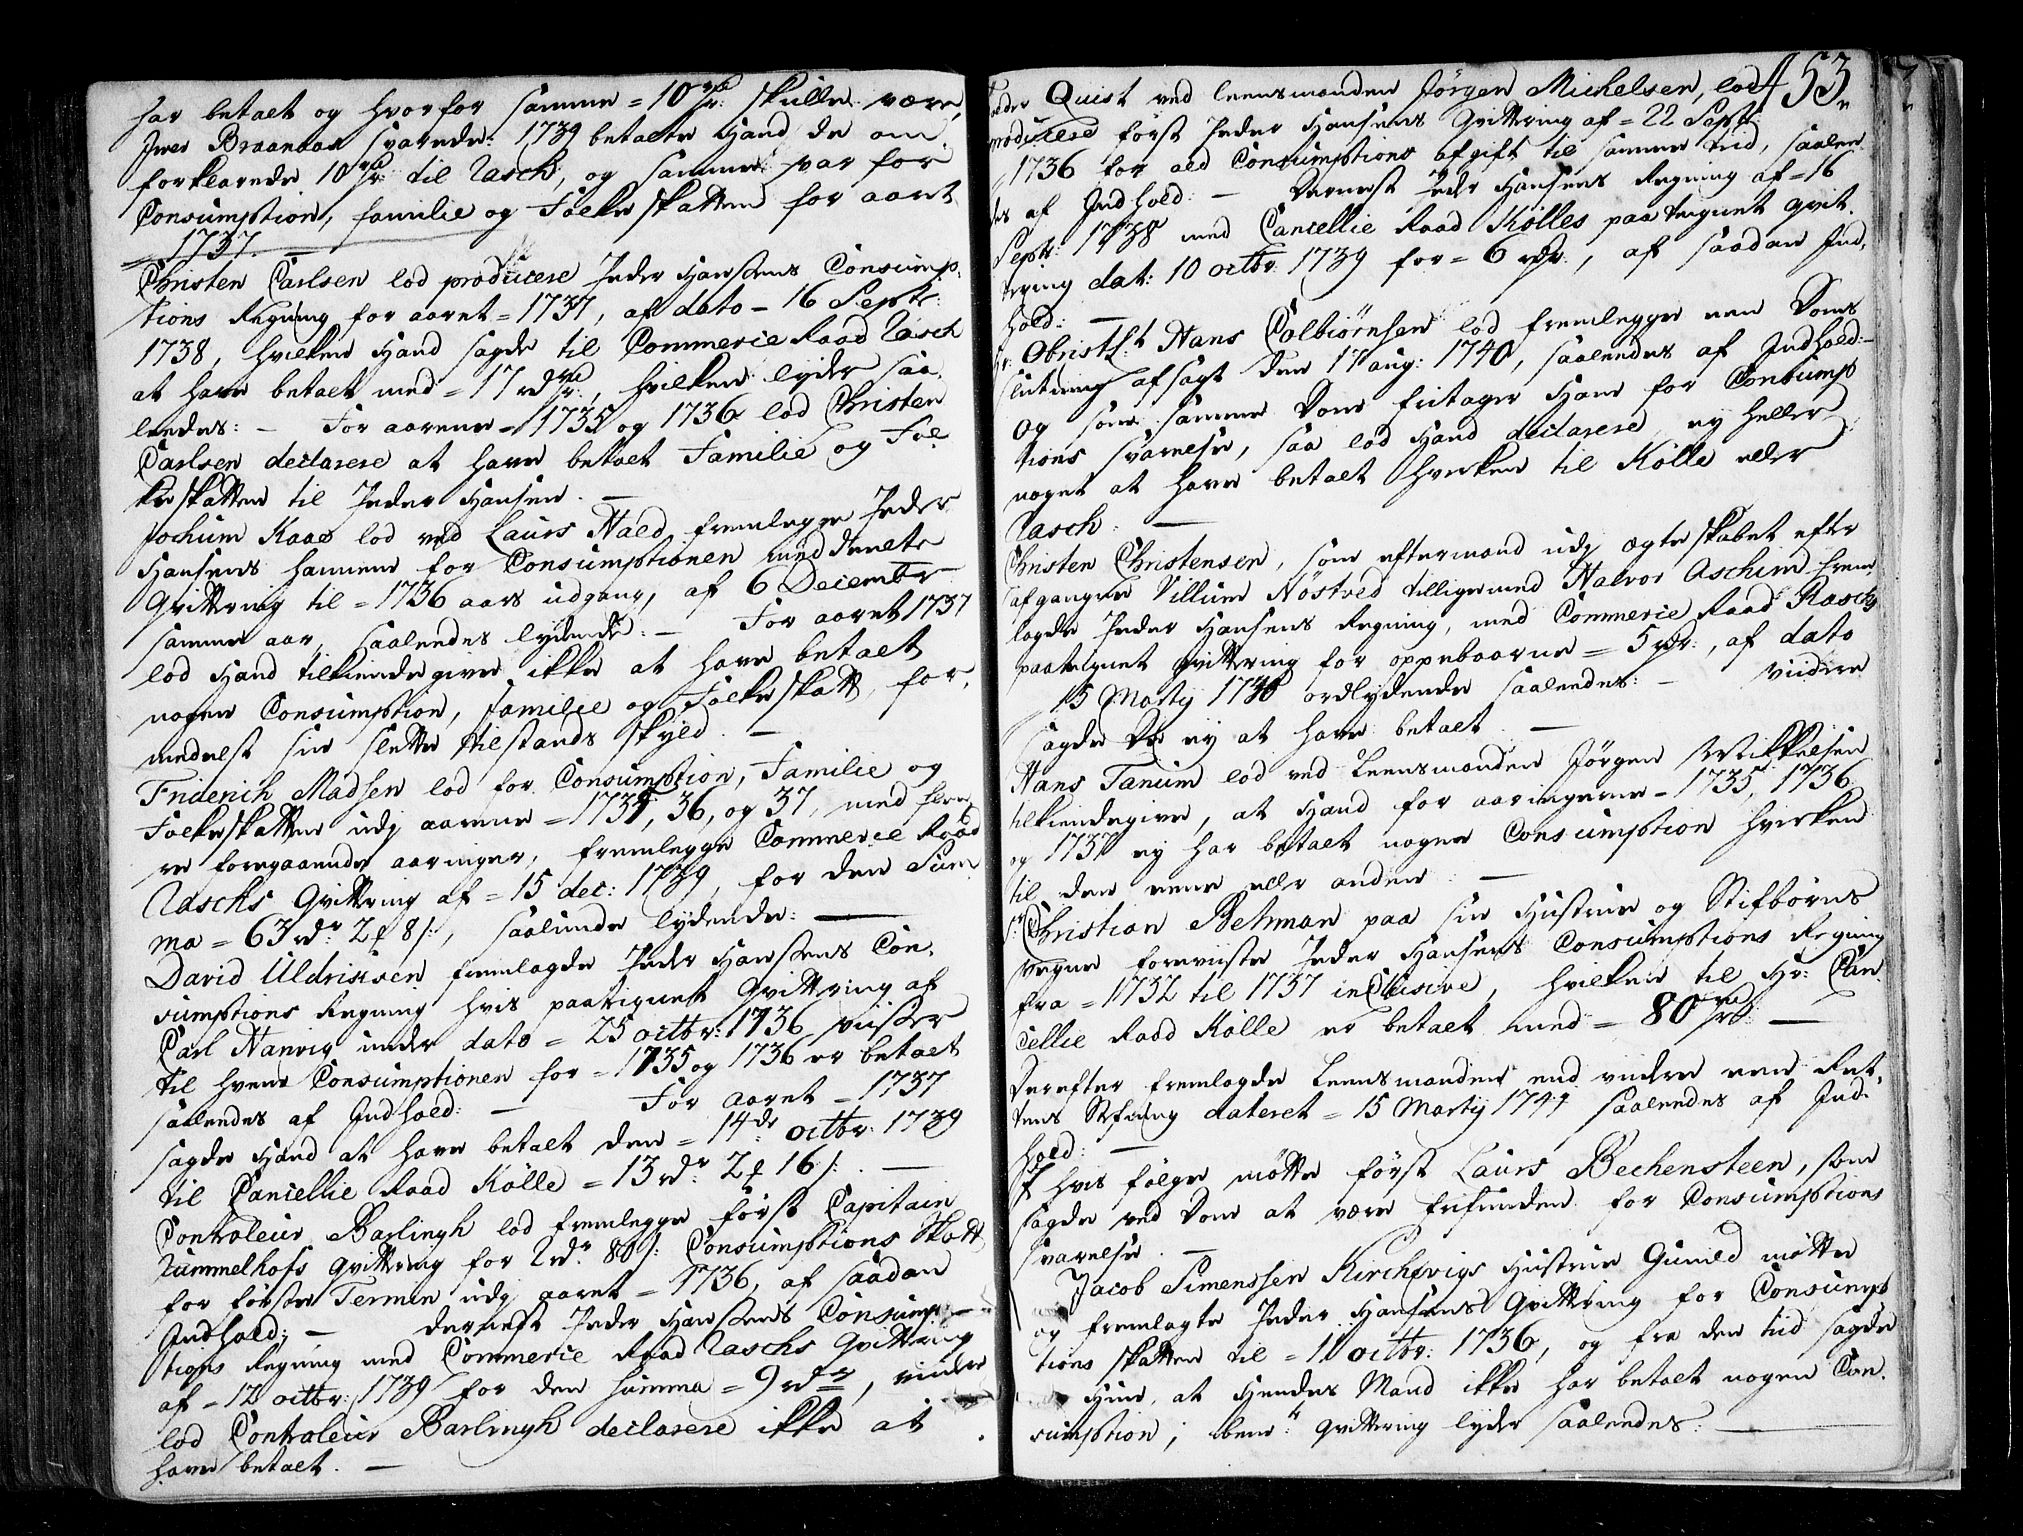 har betalt og hvorfor samme = 10 rdr: skulle være,
Iver Braanaas svarede: 1739 betalte Hand de om
forklarede 10 rdr: til Rasch, og samme var for
Consumption, familie og Folke skatten for aaret
1737. —
Christen Carlsen lod producere Peder Hansens Consump-
tions Regning for aaret = 1737, af dato = 16 Septr:
1738, hvilken Hand sagde til Commercie Raad Rasch
at have betalt med = 17 rdr:, hvilken lyder saa-
ledes: — For aarene = 1735 og 1736 lod Christen
Carlsen declarere at have betalt Familie og Fol-
ke skatten til Peder Hansen. —
Jochum Kaas lod ved Laurs Hald fremlegge Peder
Hansens hannem for Consumptionen meddeelte
Qvittering til = 1736 aars udgang, af 6 Decembr
samme aar, saaledes lydende: — For aaret 1737
lod Hand tilkiendegive ikke at have betalt
nogen Consumption, familie og Folke skatt, for-
medelst sin slette tilstands skyld. —
Friderich Madsen lod for Consumption, Familie og
Folkeskatten udj aarene = 1735, 36, og 37, med flee-
re foregaaende aaringer, fremlegge Commercie Raad
Raschs Qvittering af = 15 dec: 1739, for den Sum-
ma = 63 rdr: 2 ƒ 8 s:, saalunde lydende: —
David Uldrissen fremlagde Peder Hansens Con-
sumptions Regning hvis paategnet Qvittering af
Carl Hanvig under dato = 25 octbr: 1736 viiser
til hvem Consumptionen for = 1735 og 1736 er betalt
saaledes af Indhold: — For aaret = 1737
sagde Hand at have betalt den = 14de octbr: 1739
til Cancellie Raad Kølle = 13 rdr: 2 ƒ 16 s: —
Controleur Barlingh lod fremlegge først Capitain
Rummelhofs Qvittering for 2 rdr: 80 s: Consumptions Skatt
for første Termin udj aaret = 1736, af saadan
Indhold; — dernest Peder Hansens Consump-
tions Regning med Commercie Raad Raschs Qvittering
af = 12 octbr: 1739 for den summa = 9 rdr, videre
lod Controleur Barlingh declarere ikke at
have betalt. —
453.
Peder Quist ved leensmanden Jørgen Michelsen, lod
producere først Peder Hansens Qvittering af = 22 Septr:
1736 for ald Consumptions afgift til samme tiid, saale-
des af Indhold: — Dernest Peder Hansens Regning af = 16
Septr: 1738 med Cancellie Raad Kølles paategnet qvit-
tering dat: 10 octbr: 1739 for = 6 rdr:, af saadan Ind-
hold: —
Hr: Obristl:t Hans Colbiørnsen lod fremlegge een Doms
slutning afsagt den 17 aug: 1740, saaledes af Indhold: —
Og som samme Dom fritager Ham for Consump-
tions svarelse, saa lod Hand declarere, ey heller
noget at have betalt hverken til Kølle eller
Rasch. —
Christen Christensen, som eftermand udj ægteskabet efter
afgangne Villum Nøstved tilligemed Halvor Aschim frem-
lagde Peder Hansens Regning, med Commercie Raad Raschs
paategnet Qvittering for oppebaarne = 5 rdr:, af dato
15 Marty 1738 ordlydende saaledes: — Viidere
sagde De ey at have betalt. —
Hans Tanum lod ved Leensmanden Jørgen Mikkelsen
tilkiendegive, at Hand for aaringerne = 1735, 1736
og 1737 ey har betalt nogen Consumption hverken
til den eene eller anden: —
Sr: Christian Betman paa sin Hustrue og Stifbørns
Vegne foreviste Peder Hansens Consumptions Regning
fra = 1732 til 1737 inclusive, hvilken til Hr: Can-
cellie Raad Kølle er betalt med = 80 rdr: —
Derefter fremlagde Leensmanden end videre een Ret-
tens Stefning dateret = 15 Marty 1744 saaledes af Ind-
hold: —
I hvis følge mødte først Laurs Bechensteen, som
sagde ved Dom at være frifunden for Consumptions
svarelse. —
Jacob Simenssen Kirchevigs Hustrue Gunild mødte
og fremlagte Peder Hansens Qvittering for Consump-
tions skatten til = 11 octbr: 1736, og fra den tiid sagde
Hun, at Hendes Mand ikke har betalt nogen Con-
sumption; bem:te qvittering lyder saaledes. —